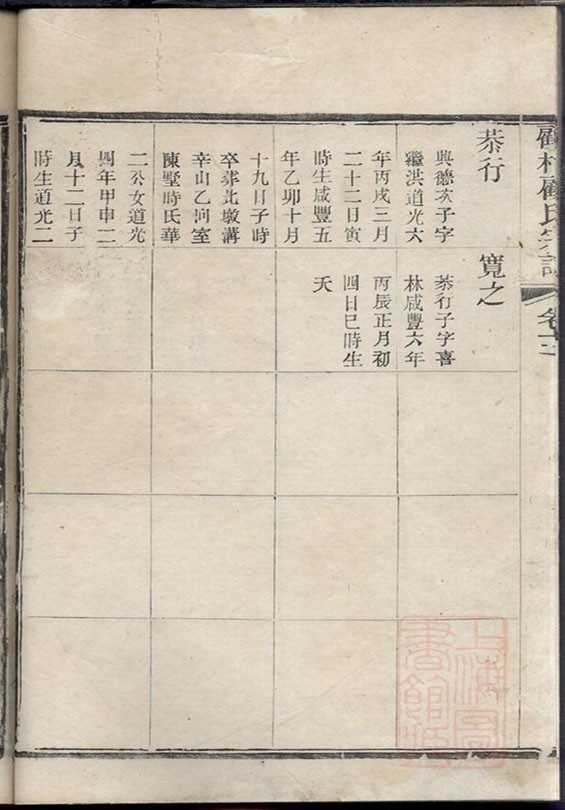 恭行
與德次子字
繼洪道光六
年丙戌三月
二十二日寅
時生咸豐五
年乙卯十月
十九日子時
卒葬北墩溝
辛山乙向室
陳墅時氏華
二公女道光
四年甲申二
月十二日子
時生道光二
寬之
恭行子字喜
林咸豐六年
丙辰正月初
四日巳時生
夭
顧氏宗譜
上海圖書館藏